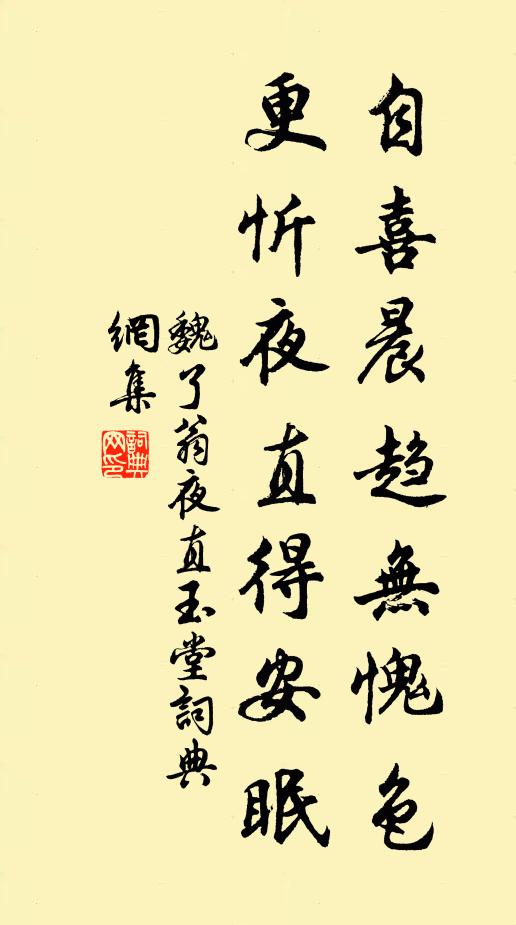 自喜晨趋無愧色
更忻夜直得安眠
魏了翁夜直玉堂詞典
網集
詞典網印